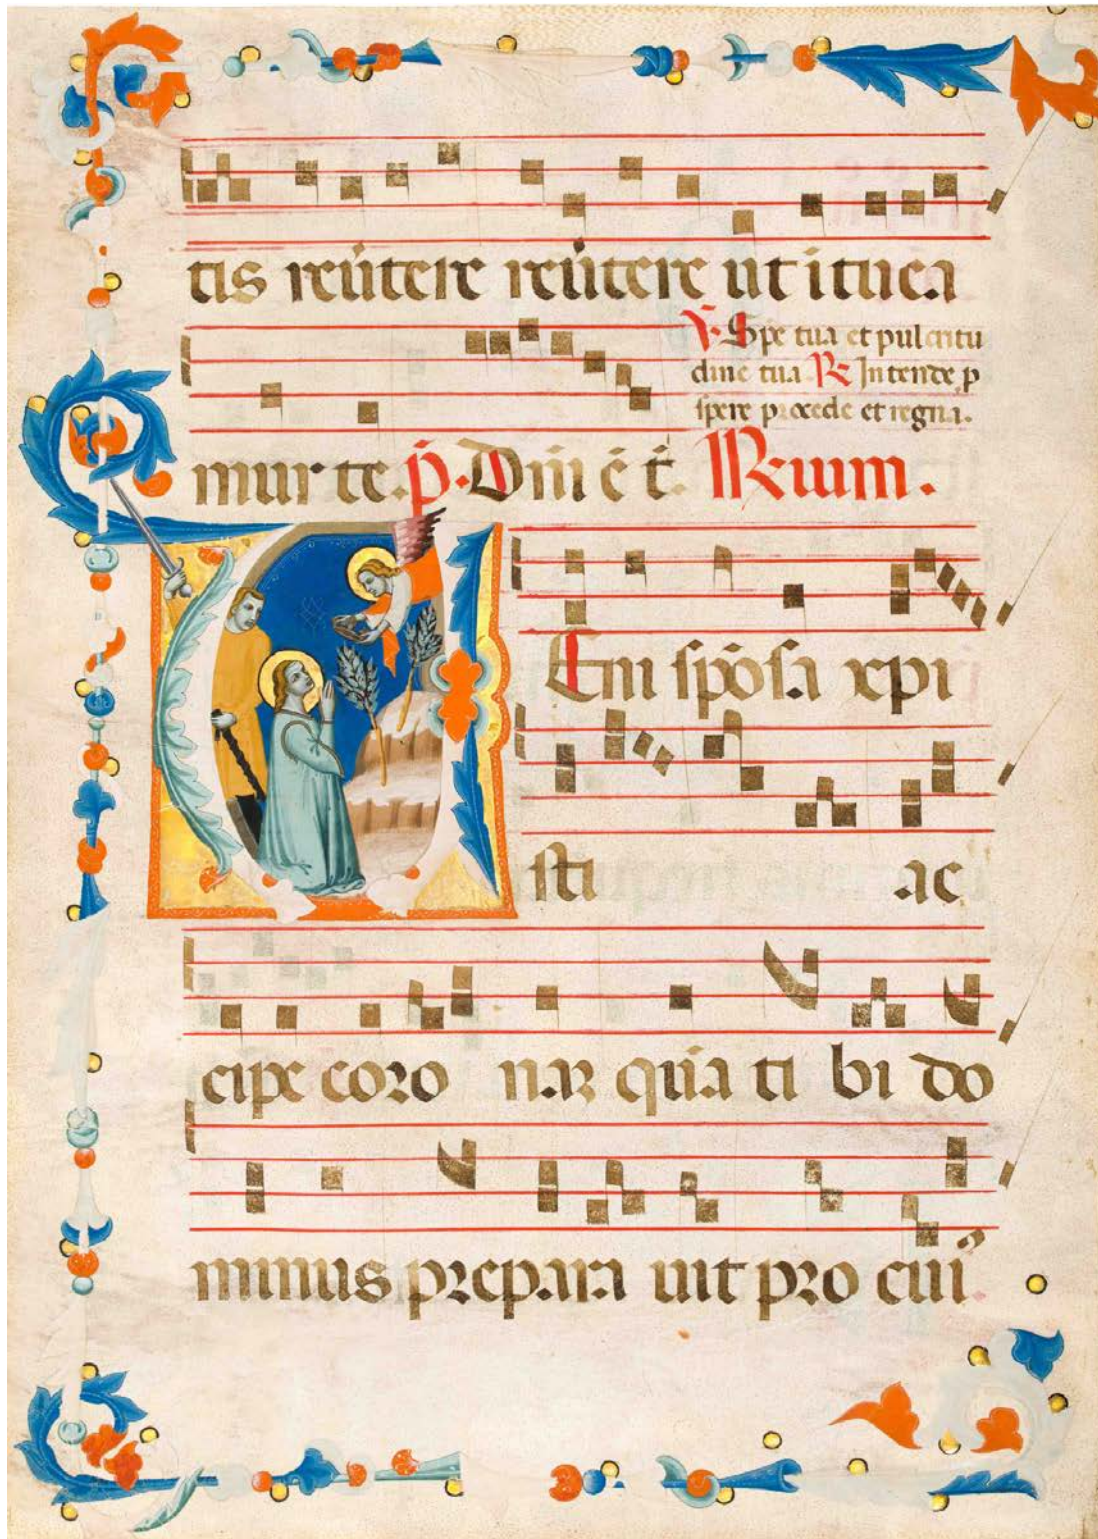 tis reủtere reủtere ut ituea
℣. Spe tua et pulcritu
dine tua. ℟ Intende p̱
spere procede et regna.
mur te. p̄. Dñi ē t̄. ℟uum.
Eni spo̅sa xp̱i
sti ac
cipe coro naꝫ quia ti bi do
minus prepara uit pro cui